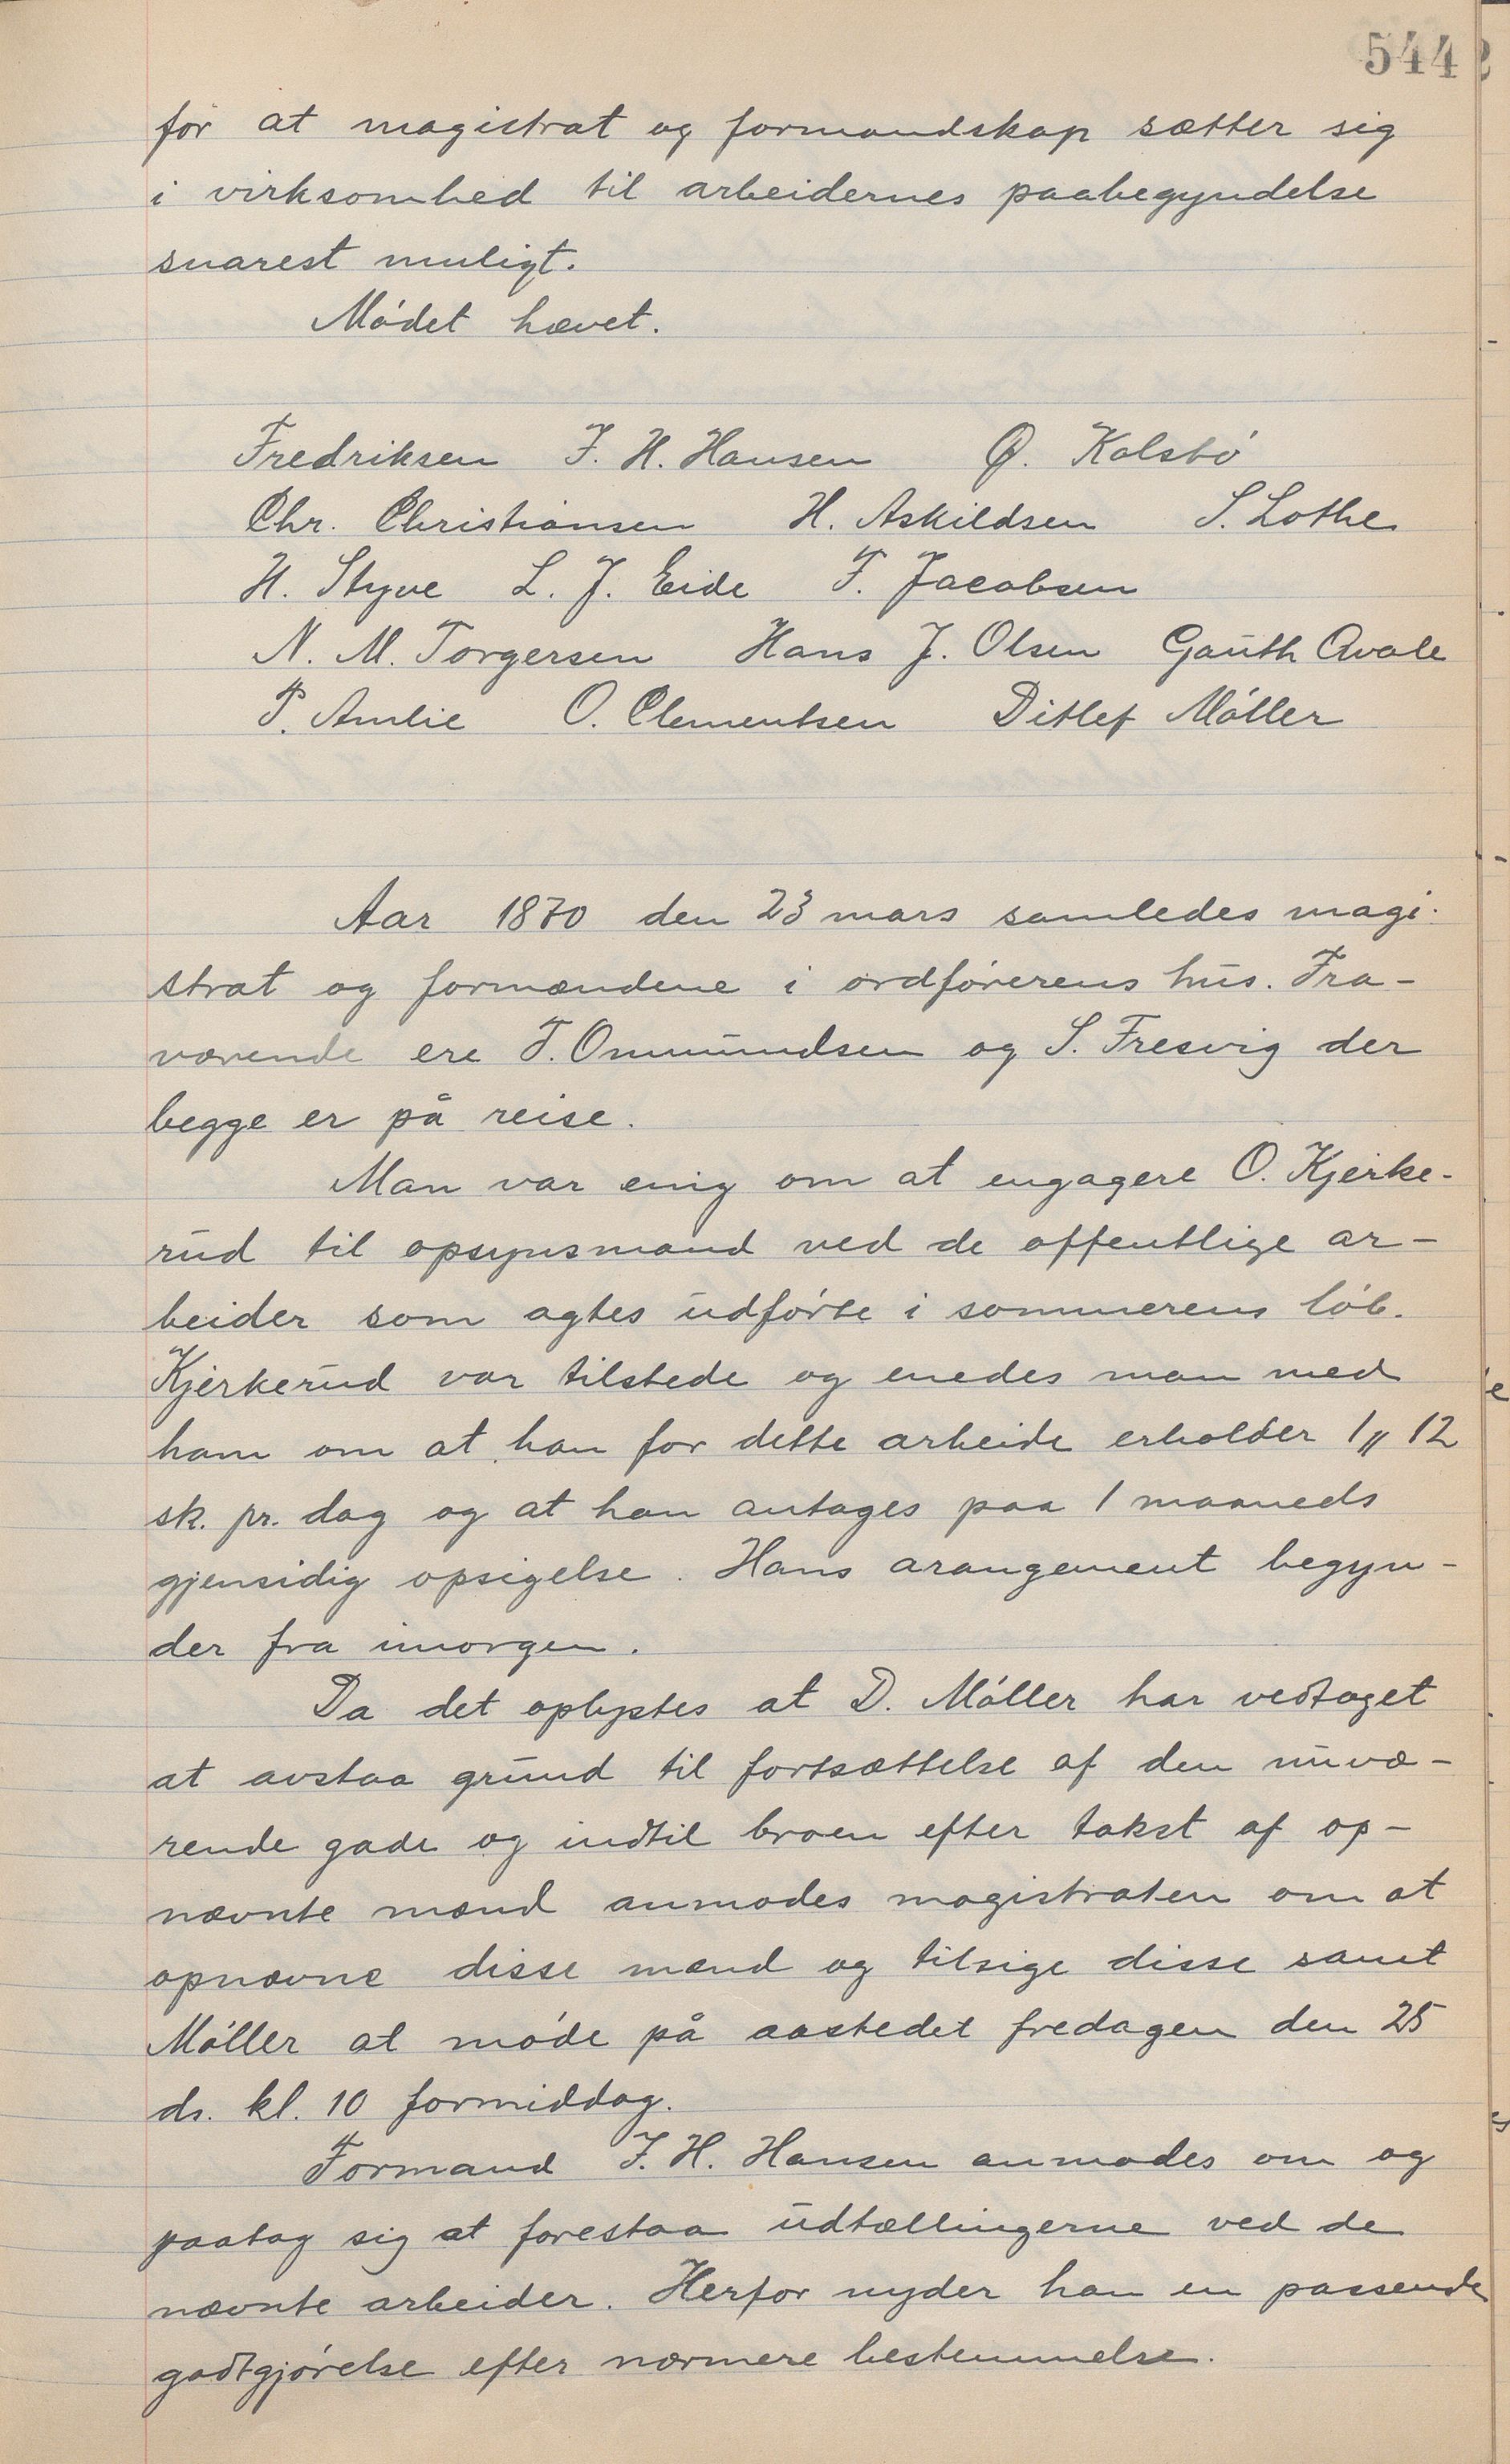 544
for at magistrat og formandskap sætter sig
i virksomhed til arbeidernes paabegyndelse
snarest muligt.
Mødet hævet.
Fredriksen J. H. Hansen Ø. Kolstø
Chr. Christiansen H. Askildsen S. Lothe
H. Styve L. J. Eide F. Jacobsen
N. M. Torgersen Hans J. Olsen Gauth Qvale
P. Amlie O. Clementsen Ditlef Møller
Aar 1870 den 23 mars samledes magi-
strat og formændene i ordførerens hus. Fra-
værende ere T. Ommundsen og S. Fresvig der
begge er på reise.
Man var enig om at engagere O. Kjerke-
rud til opsynsmand ved de offentlige ar-
beider som agtes udførte i sommerens løb.
Kjerkerud var tilstede og enedes man med
ham om at han for dette arbeide erholder 1„ 12
sk. pr. dag og at han antages paa 1 maaneds
gjensidig opsigelse. Hans arangement begyn-
der fra imorgen.
Da det oplystes at D. Møller har vedtaget
at avstaa grund til fortsættelse af den nuvæ-
rende gade og indtil broen efter takst af op-
nævnte mænd anmodes magistraten om at
opnævne disse mænd og tilsige disse samt
Møller at møde på aastedet fredagen den 25
ds. kl. 10 formiddag.
Formand J. H. Hansen anmodes om og
paatog sig at forestaa udtællingerne ved de
nævnte arbeider. Herfor nyder han en passende
godtgjørelse efter nærmere bestemmelse.